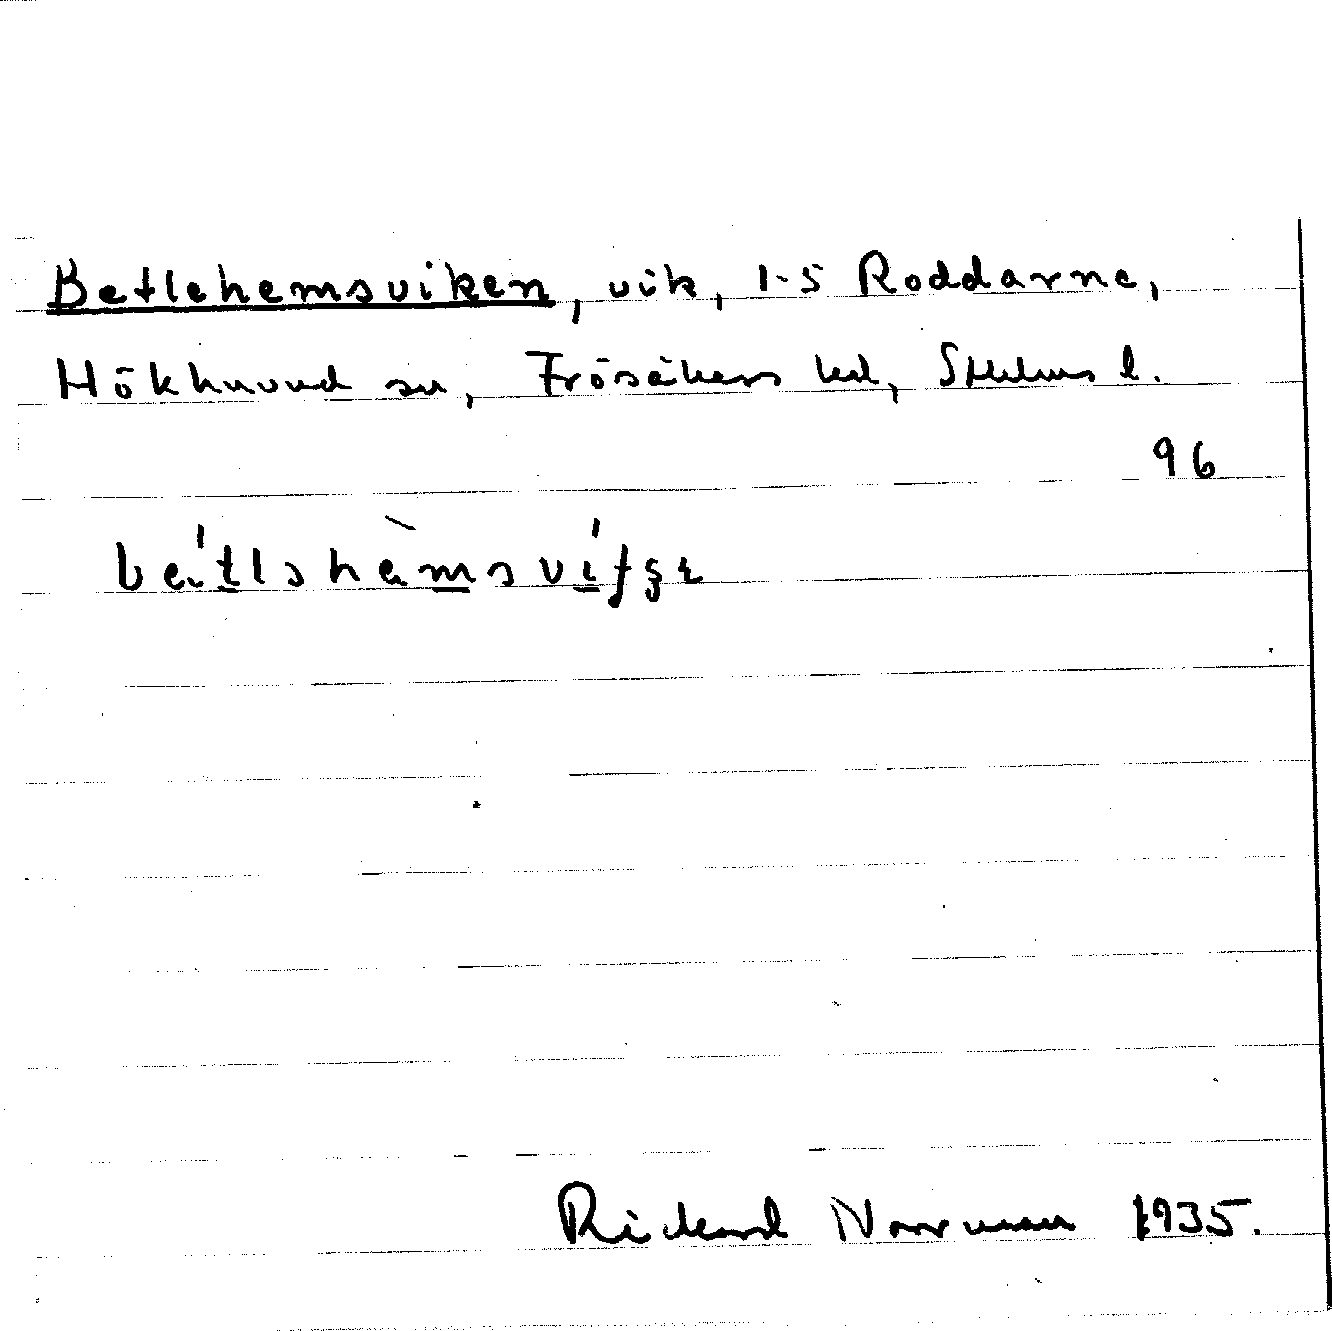 Betlehemsviken, vik, 1-5 Roddarne,
Hökhuvud sn, Frösåkers hd, Sthlms l.
96
Rickard Norrman 1935.